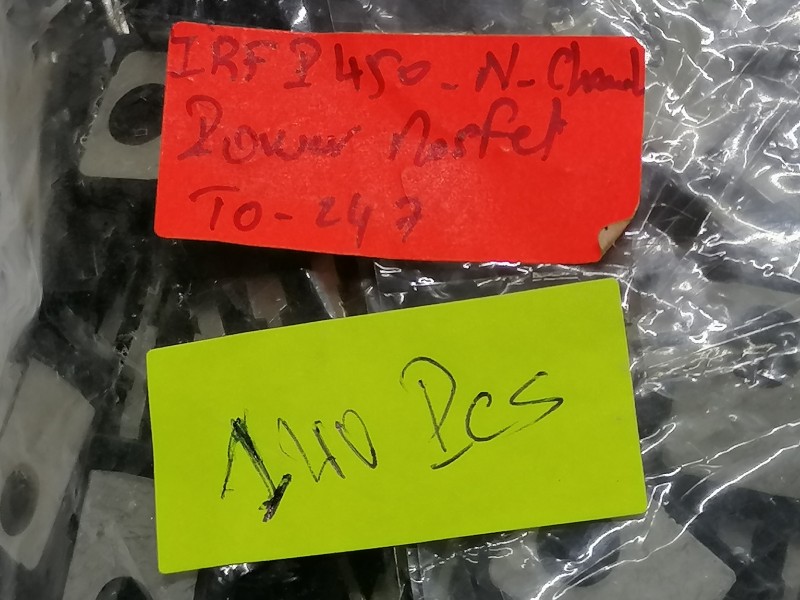 IRFP450-N-Channel
Power Mosfet
TO-247
140 Pcs